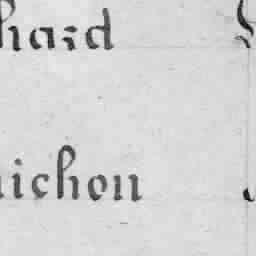 hard
ichon